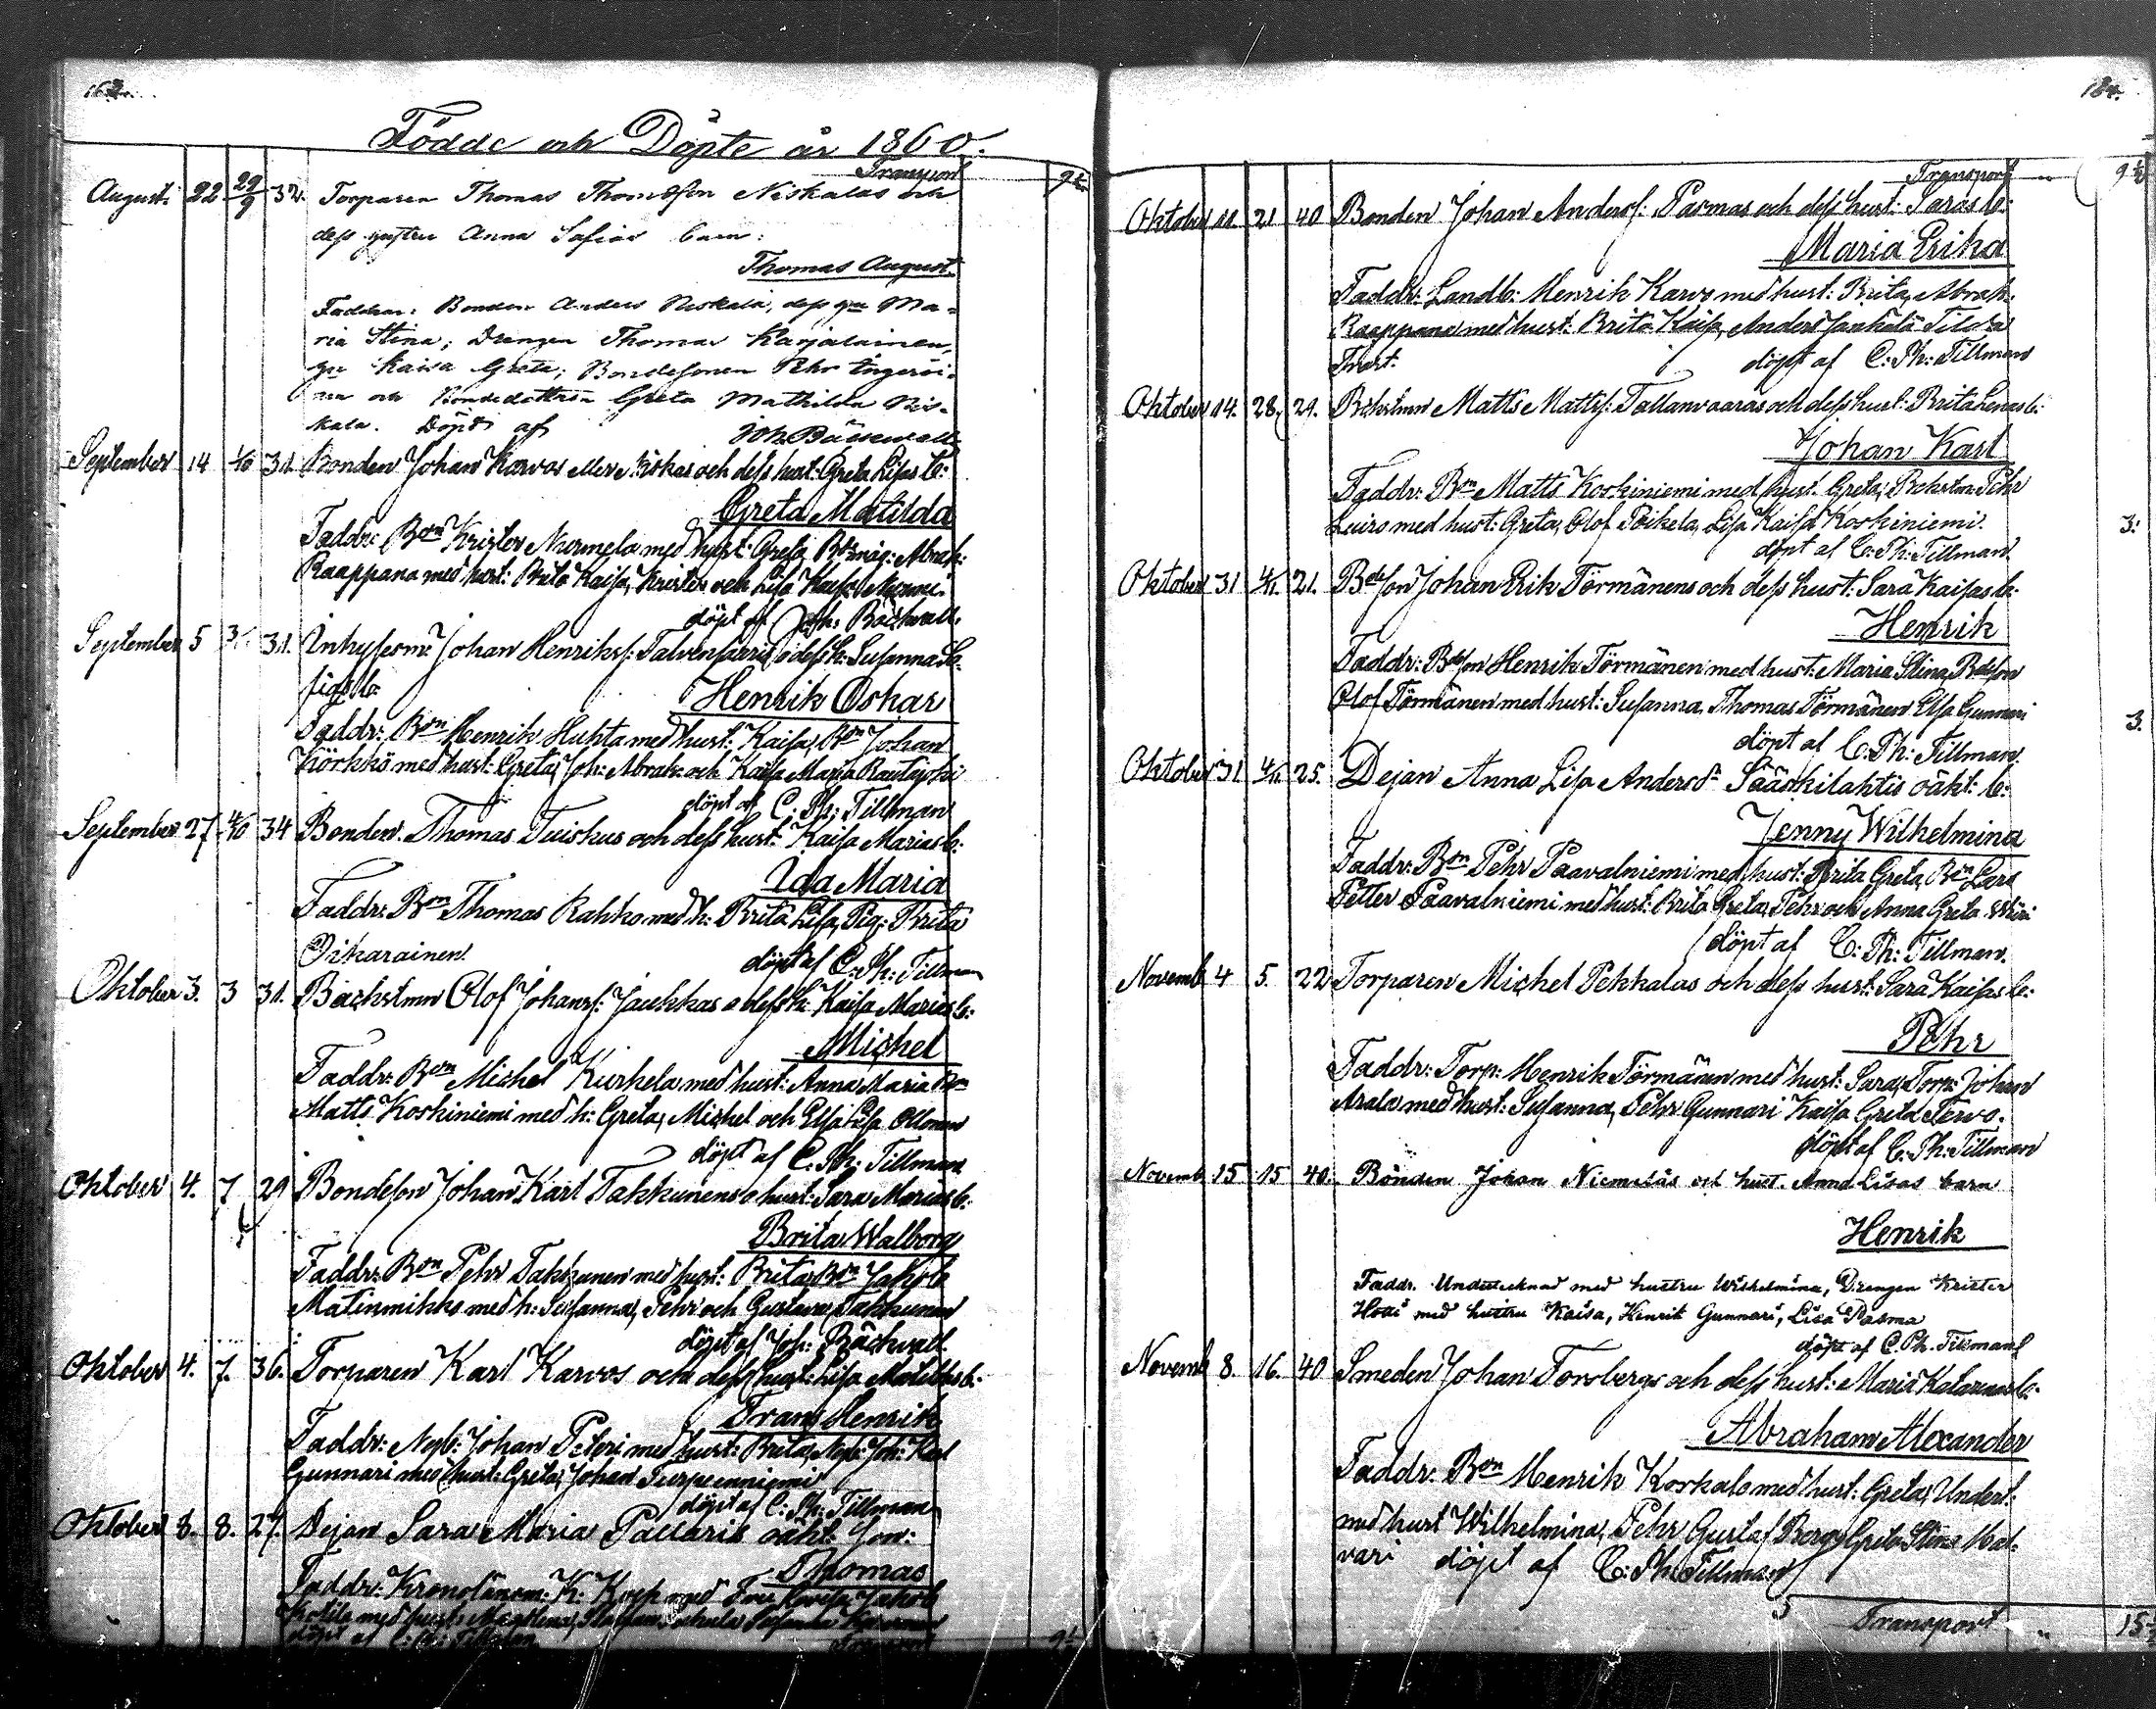 163.
Födde och Döpte år 1860.
Transport 9½
August. 22 29/9 32. Torparen Thomas Thomsson Niskalas och
dess hustru Anna Sofias barn:
Thomas August.
Faddrar: Bonden Anders Niskala, dess hu Ma-
ria Stina; Drengen Thomas Karjalainen,
hu Kaisa Greta; Bondesonen Pehr
och Bondedottren Greta Mathilda Nis-
kala. Döpt af Joh. Bäckwall
September 14 1/10 31. Bonden Johan Karvos eller Kiskas och dess hust: Greta Lisas b:
Greta Matilda
Faddr: Bon Krister Nurmela med hust: Greta, Abrah:
Raappana med hust: Brita Kaisa, Krister och Lisa Kaisa
döpt af Joh. Bäckwall.
September 5 31. Inhysesm: Johan Henrikss: Talvensaaris o dess h: Susanna So-
fias b:
Henrik Oskar
Faddr: Bon Henrik Huhta med hust: Kaisa, Bon Johan
Körkkö med hust: Greta, Joh: Abrah: och Kaisa Maria Rautajoki
döpt af C: Ph: Tillman
September 27 4/10 34 Bonden Thomas Tuiskus och dess hust: Kaisa Marias b:
Ida Maria
Faddr: Bon Thomas Kahko med h: Brita Lisa, Pig: Brita
Oikarainen.
döpt af C: Ph: Tillman
Oktober 3. 3 31. Backstmn Olof Johanss: Jaukkas o dess h: Kaisa Marias b:
Michel
Faddr: Bon Michel Kurkela med hust: Anna Maria Bon
Matts Koskiniemi med h: Greta, Michel och Elsa Lisa Ollonen
döpt af C: Ph: Tillman
Oktober 4. 7 29 Bondeson Johan Karl Takkunens o hust: Sara Marias b:
Brita Walborg
Faddr: Bon Pehr Takkunen med hust: Brita, Bon Jakob
Matinmikko med h: Susanna, Pehr och Gustava Takkunen
döpt af Joh: Bäckwall.
Oktober 4. 7. 36. Torparen Karl Karvos och dess hust: Lisa Matildas b:
Frans Henrik
Faddr: Nyb: Johan Peteri med hust: Brita, Nyb: Joh: Karl
Gunnari med hust: Greta, Johan
döpt af C: Ph: Tillman
Oktober 8. 8. 27. Dejan Sara Maria Pallaris oäkt. Son:
Thomas
Faddr: Kronolänsm: K: Koch med Fru Lovisa, Jakob
med hust: Magdlena,
döpt af C: Ph: Tillman
Transport 9½
184.
Transport 9½
Oktober 11. 21 40 Bonden Johan Anderss: Pasmas och dess hust: Saras b:
Maria Erika
Faddr: Landb: Henrik Karvo med hust: Brita, Abrah:
Raappana med hust: Brita Kaisa, Anders Jankala Tilda
döpt af C: Ph: Tillman
Oktober 14. 28. 29. Bckstmn Matts Mattss: Tallavaaras och dess hust: Brita Lenas b:
Johan Karl
Faddr: Bon Matts Koskiniemi med hust: Greta, Bckstm: Pehr
Luiro med hust: Greta, Olof Poikela, Lisa Kaisa Koskiniemi. 3:
döpt af C: Ph: Tillman.
Oktober 31 4/11. 21. Bdeson Johan Erik Törmänens och dess hust: Sara Kaisas b:
Henrik
Faddr: Bdeson Henrik Törmänen med hust: Maria Stina, Bdeson
Olof Törmänen med hust: Susanna, Thomas Törmänen Elsa Gunnari 3.
döpt af C: Ph: Tillman.
Oktober 31 4/11 25. Dejan Anna Lisa Andersdr Sääskilahtis oäkt: b:
Jenny Wilhelmina
Faddr: Bon Pehr Paavalniemi med hust: Brita Greta, Bon Lars
Petter Paavalniemi med hust: Brita Greta, Pehr och Anna Greta Wiiri
döpt af C: Ph: Tillman.
Novemb 4 5. 22 Torparen Michel Pekkalas och dess hust: Sara Kaisas b:
Pehr
Faddr: Torp: Henrik Törmänen med hust: Sara, Torp: Johan
Arala med hust: Susanna, Pehr Gunnari Kaisa Greta Tervo.
döpt af C: Ph: Tillman
Novemb 15 15 40. Bonden Johan Niemeläs och hust. Anna Lisas barn
Henrik
Faddr. Undertecknad med hustru Wilhelmina, Drengen Krister
Hotti med hustru Kaisa, Henrik Gunnari, Lisa Pasma
döpt af C. Ph. Tillman
Novemb 8. 16. 40 Smeden Johan Forsbergs och dess hust: Maria Katarinas b:
Abraham Alexander
Faddr: Bon Henrik Korkalo med hust: Greta, Undert:
med hust Wilhelmina, Pehr Gustaf Berg, Greta Stina Hat-
vari döpt af C: Ph: Tillman
Transport 15½